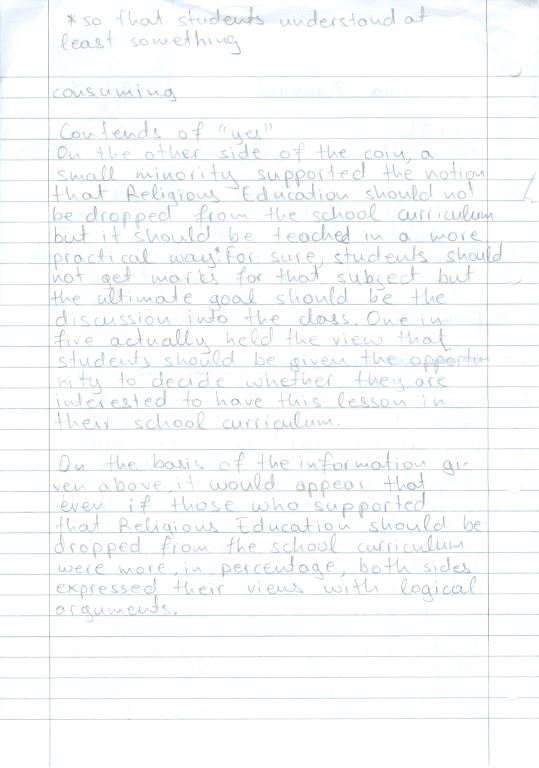 *so that students understand at
least something
consuming
Contends of "yes"
On the other side of the coin, a
small minority supported the notion
that Religious Education should not
be dropped from the school curriculum
but it should be teached in a more
practical way*. For sure, students should
not get marks for that subject but
the ultimate goal should be the
discussion into the class. One in
five actually held the view that
students should be given the opportu-
nity to decide whether they are
interested to have this lesson in
their school curriculum.
On the basis of the information gi-
ven above, it would appear that
even if those who supported
that Religious Education should be
dropped from the school curriculum
were more, in percentage, both sides
expressed their views with logical
arguments.